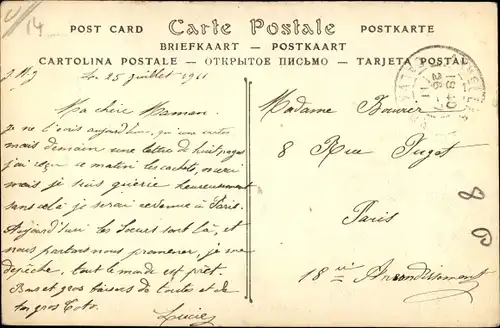 14
POST CARD Carte Postale POSTKARTE
BRIEFKAART — POSTKAART
CARTOLINA POSTALE — ОТКРЫТОЕ ПИСЬМО — TARJETA POSTAL
Le 25 juillet 1911
Ma chère Maman.
Je ne t'écris aujourd'hui, qu'une carte
mais demain une lettre de huit pages
j'ai reçu ce matin les cachets, merci
mais je suis guérie heureusement
sans cela je serai revenue à Paris.
Aujourd'hui les Soeurs sont là, et
nous partons nous promener, je me
dépêche, tout le monde est prêt.
Bons et gros baisers de toutes et de
ton gros Toto.
Lucie
Madame Bouvier
8 Rue Puget
Paris
18 ième Arrondissement
18 40
26
11
8